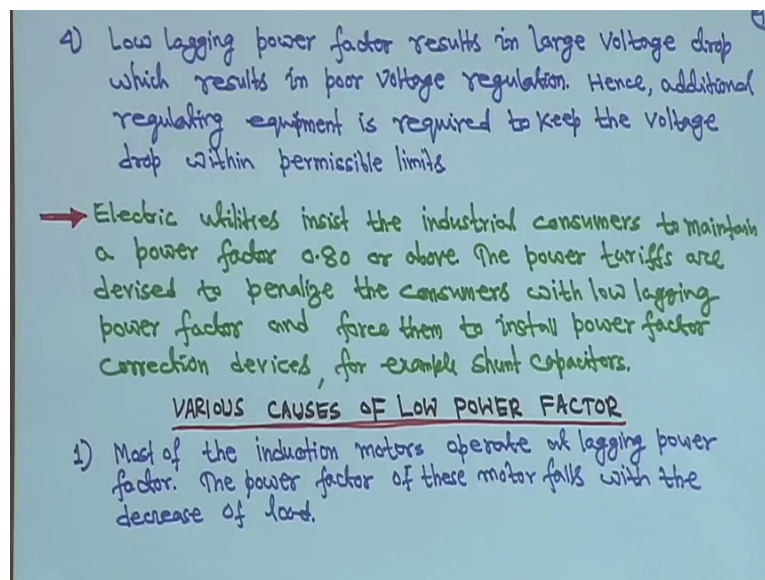 4) Low lagging power factor results in large voltage drop
which results in poor voltage regulation. Hence, additional
regulating equipment is required to keep the voltage
drop within permissible limits
→ Electric utilities insist the industrial consumers to maintain
a power factor 0.80 or above. The power tariffs are
devised to penalize the consumers with low lagging
power factor and force them to install power factor
correction devices, for example shunt capacitors.
VARIOUS CAUSES OF LOW POWER FACTOR
1) Most of the induction motors operate at lagging power
factor. The power factor of these motor falls with the
decrease of load.